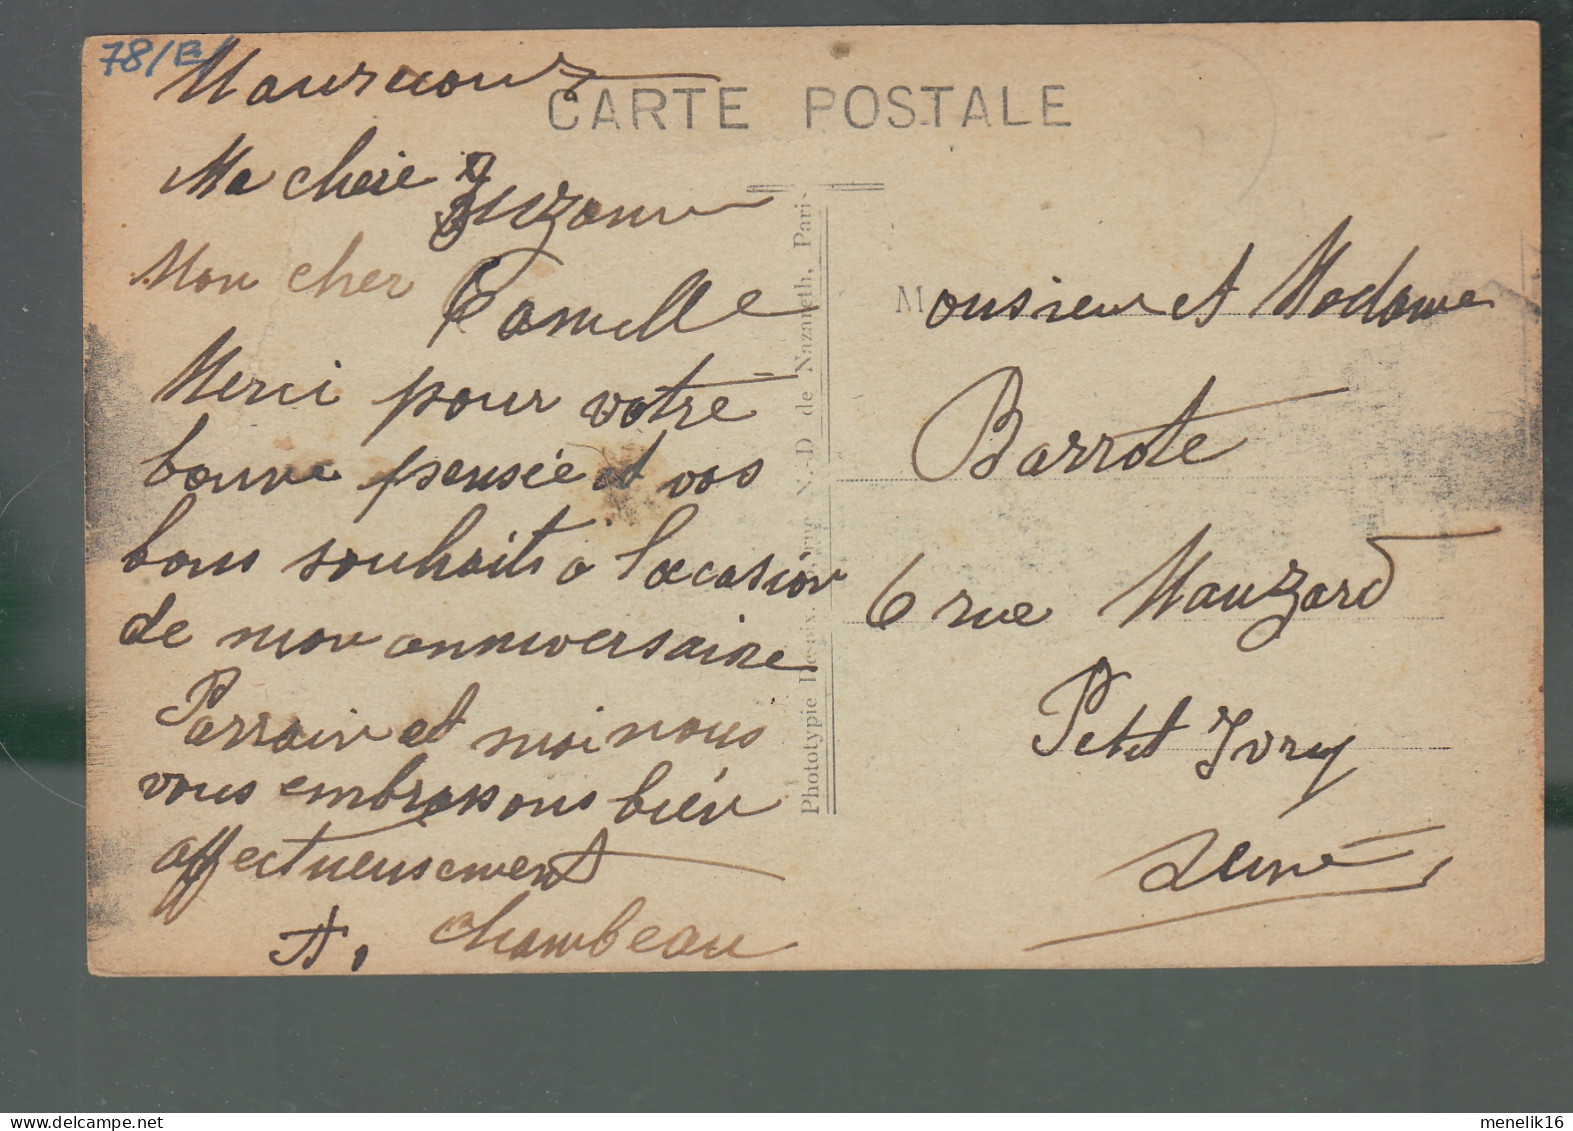 78/E
Maurecourt
CARTE POSTALE
Ma chère Suzanne
Mon cher Camille
Merci pour votre
bonne pensée et vos
bons souhaits à l'occasion
de mon anniversaire
Parrain et moi nous
vous embrassons bien
affectueusement
A. Chambeau
Phototypie N.-D. de Nazareth, Paris
Monsieur et Madame
Barrote
6 rue Mauzard
Petit Ivry
Seine
menelik16